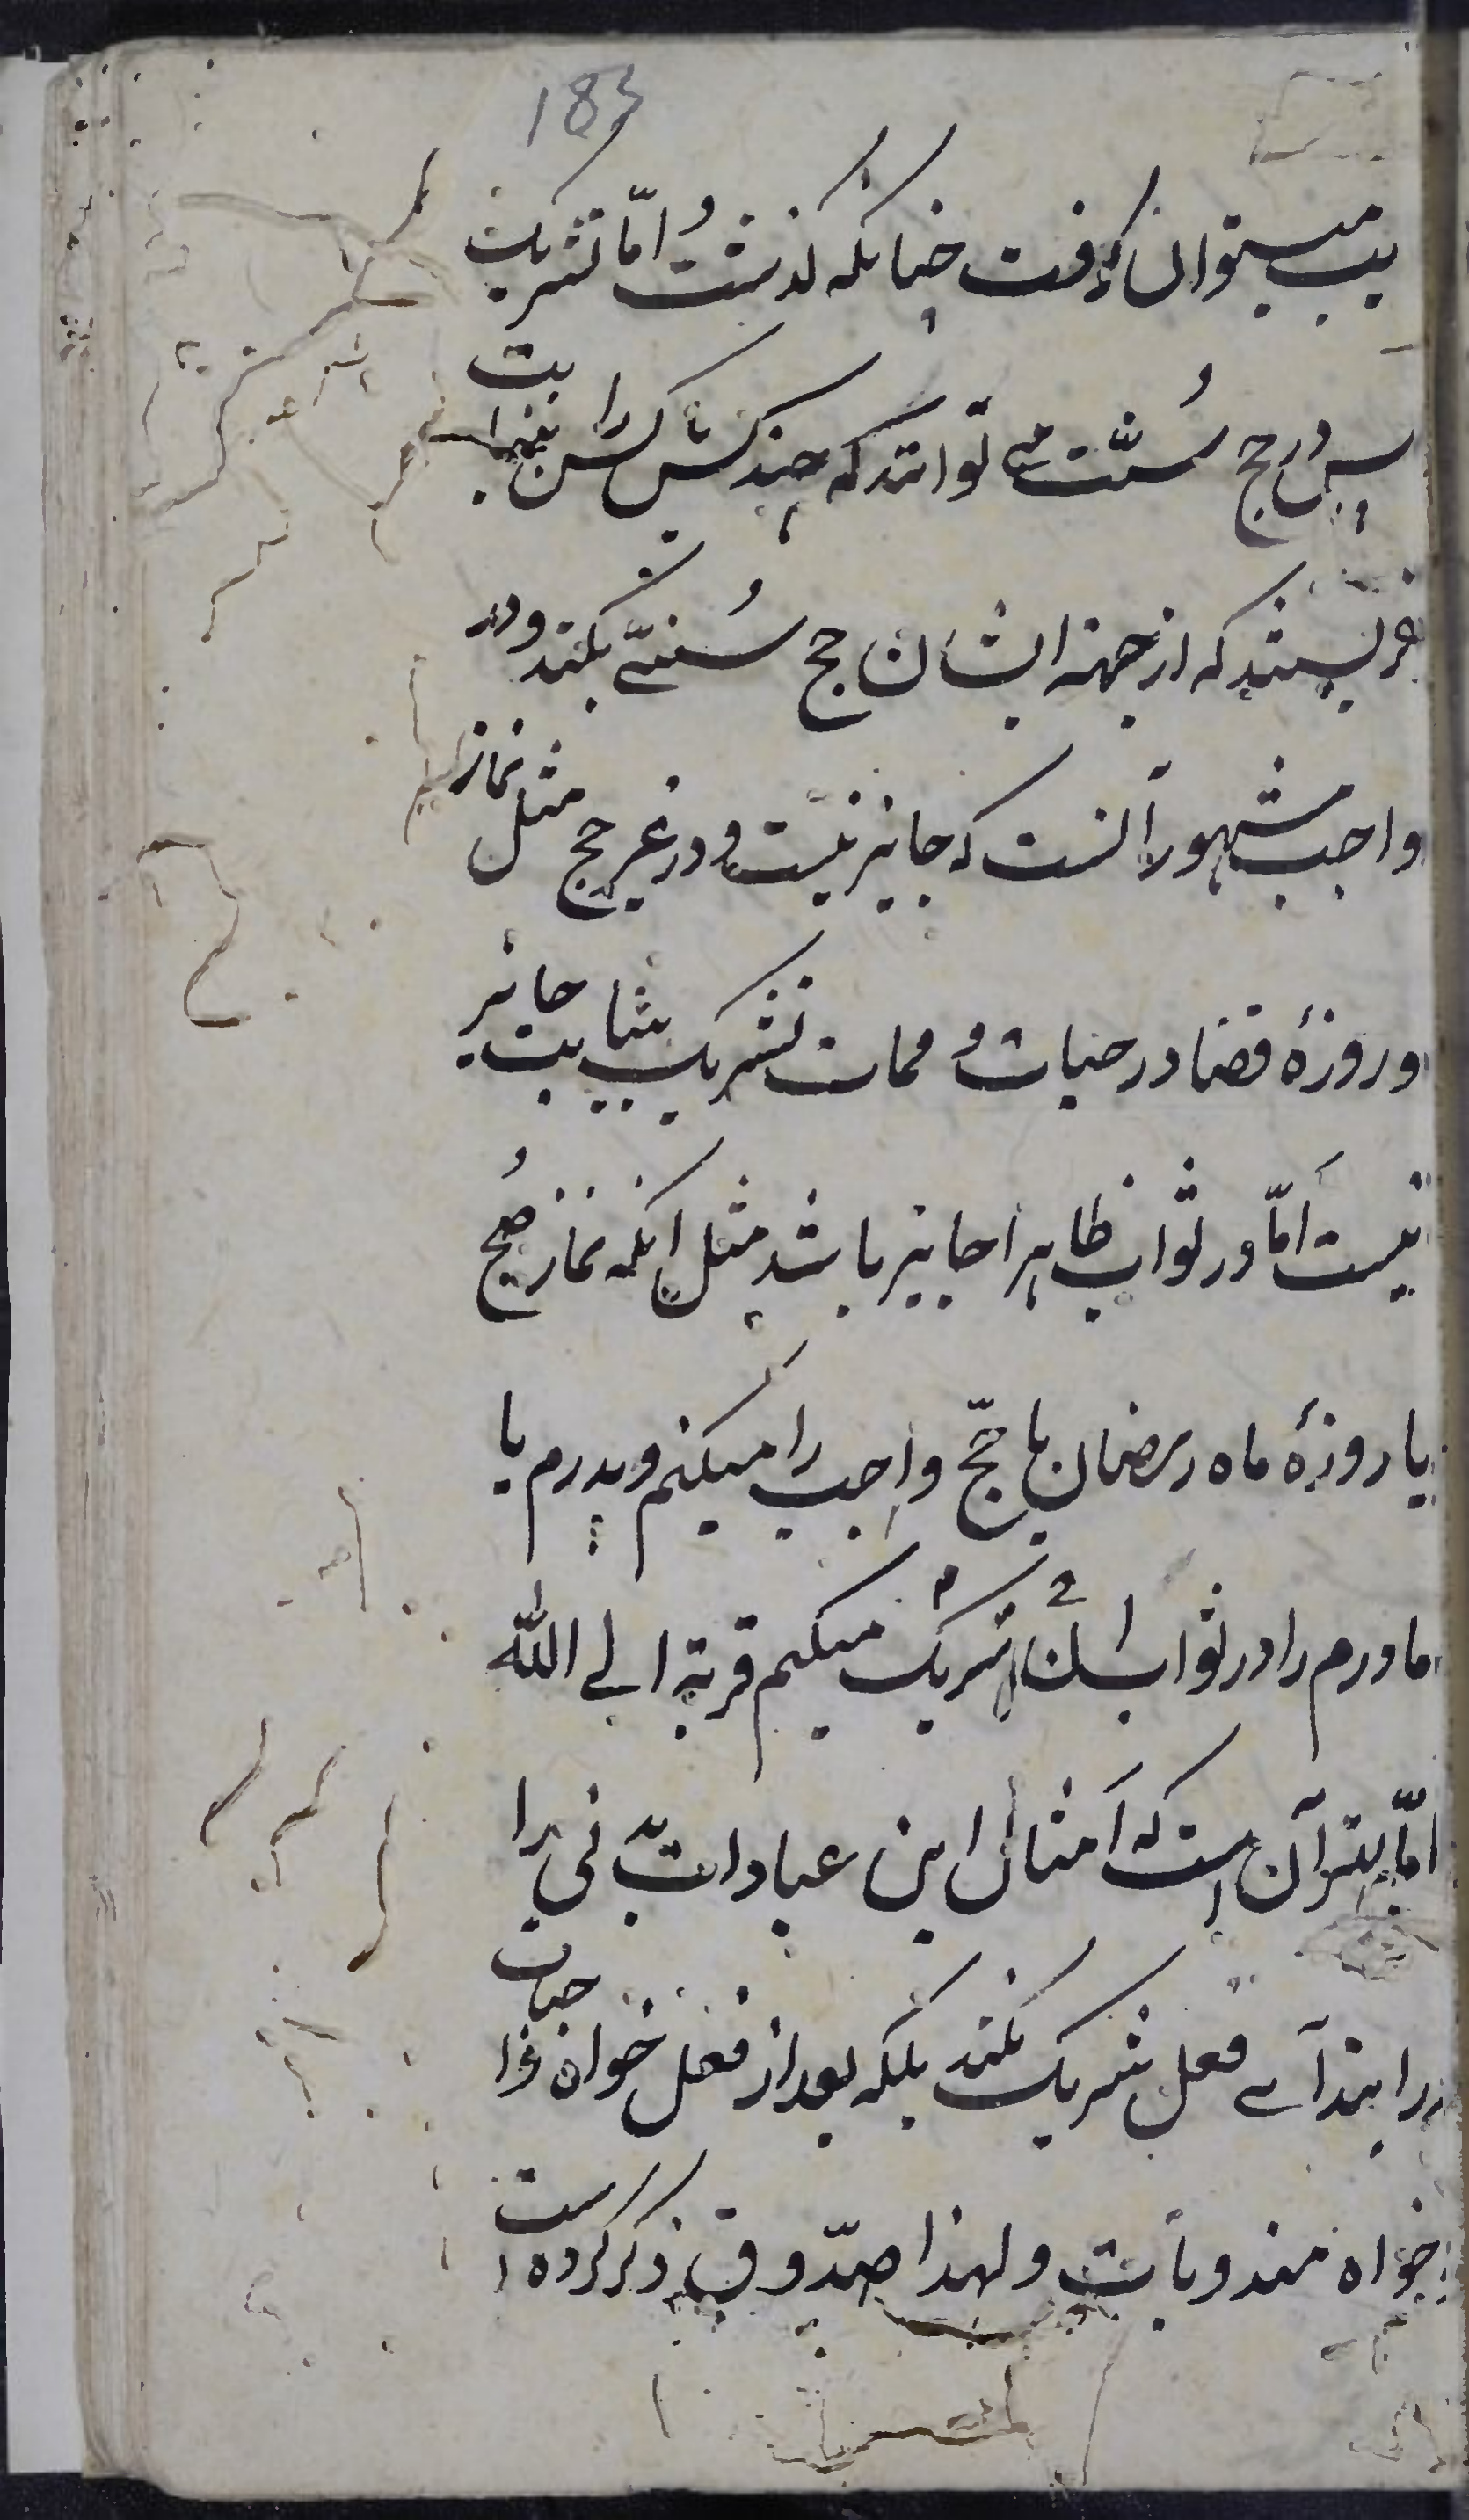 183
یب میتوان گرفت چنانکه گذشت و امّا تشریک
پس در حج سُنّت می توانند که چند کس کس را بنیابت
فریسند که از جهة ایشان حج سُنتّے بکنند و در
واجب مشهور آنست که جایز نیست و در غیر حج مثل نماز
و روزهٔ قضا در حیات و ممات تشریک بنیابت جایز
نیست اَمّا در ثواب ظاهرا جایز باشد مثل انکه نماز صُبح
یا روزهٔ ماه رمضان یا حجّ واجب را میکنم و پدرم یا
مادرم را در ثواب شریک میکنم قربة الے اللّه
امّا بهتر آن است که اَمثال این عبادات نی را
در ابتدآے فعل شریک نکند بلکه بعد از فعل خواه واجبات
خواه مندوبات و لهذا صدّوق ذکر کرده است